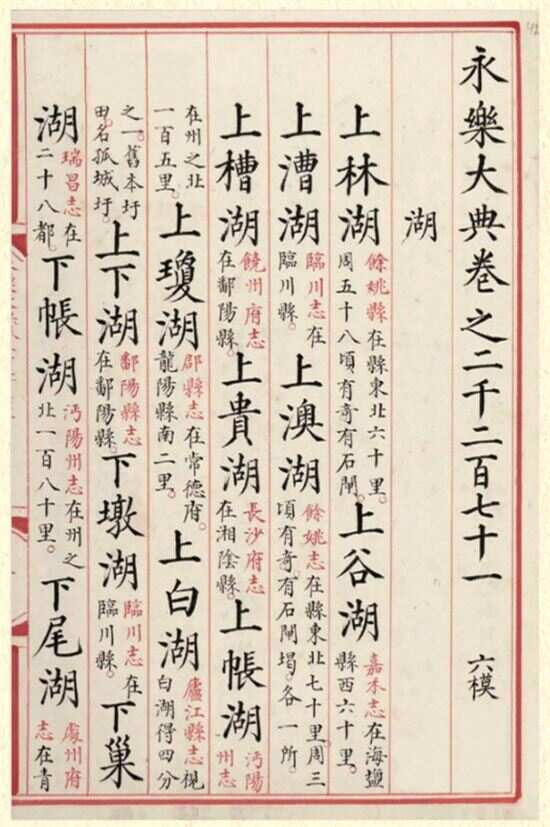 永樂大典卷之二千二百七十一 六模
湖
上林湖餘姚縣在縣東北六十里。周五十八頃有奇有石閘。上谷湖嘉禾志在海鹽縣西六十里。
上漕湖臨川志在臨川縣。上澳湖餘姚志在縣東北七十里。周三頃有奇。有石閘塌。各一所
上槽湖饒州府志在鄱陽縣。上貴湖長沙府志在湘陰縣。上帳湖沔陽州志
在州之北一百五里。上瓊湖郡縣志在常德府。龍陽縣南二里。上白湖廬江縣志視白湖得四分
之一。舊本圩田名孤城圩。上下湖鄱陽縣志在鄱陽縣。下墩湖臨川志在臨川縣。下巢
湖瑞昌志在二十八都。下帳湖沔陽州志在州之北一百八十里。下尾湖處州府志在青